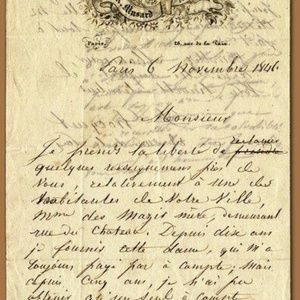 Musard
Paris, 26, rue de la Paix.
Paris 6 Novembre 1846
Monsieur
Je prends la liberté de réclamer
quelques renseignemens près de
Vous, relativement à Une des
habitantes de Votre Ville,
Mme des Mazis mère, demeurant
rue du Château. Depuis dix ans
je fournis cette Dame, qui m'a
toujours payé par à compte; Mais
depuis Cinq ans, je n'ai pu
obtenir un seul à compte